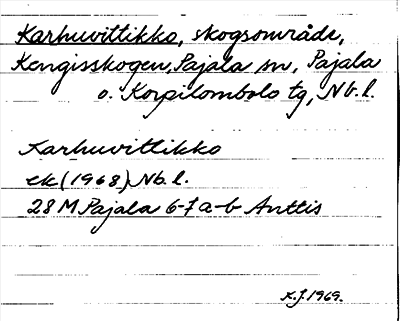 Karhuvittikko, skogsområde,
Kengisskogen, Pajala sn, Pajala
o. Korpilombolo tg, Nb.l.
Karhuvittikko
ek (1968) Nb.l.
28 M Pajala 6-7 a-b Anttis
K.J. 1969.